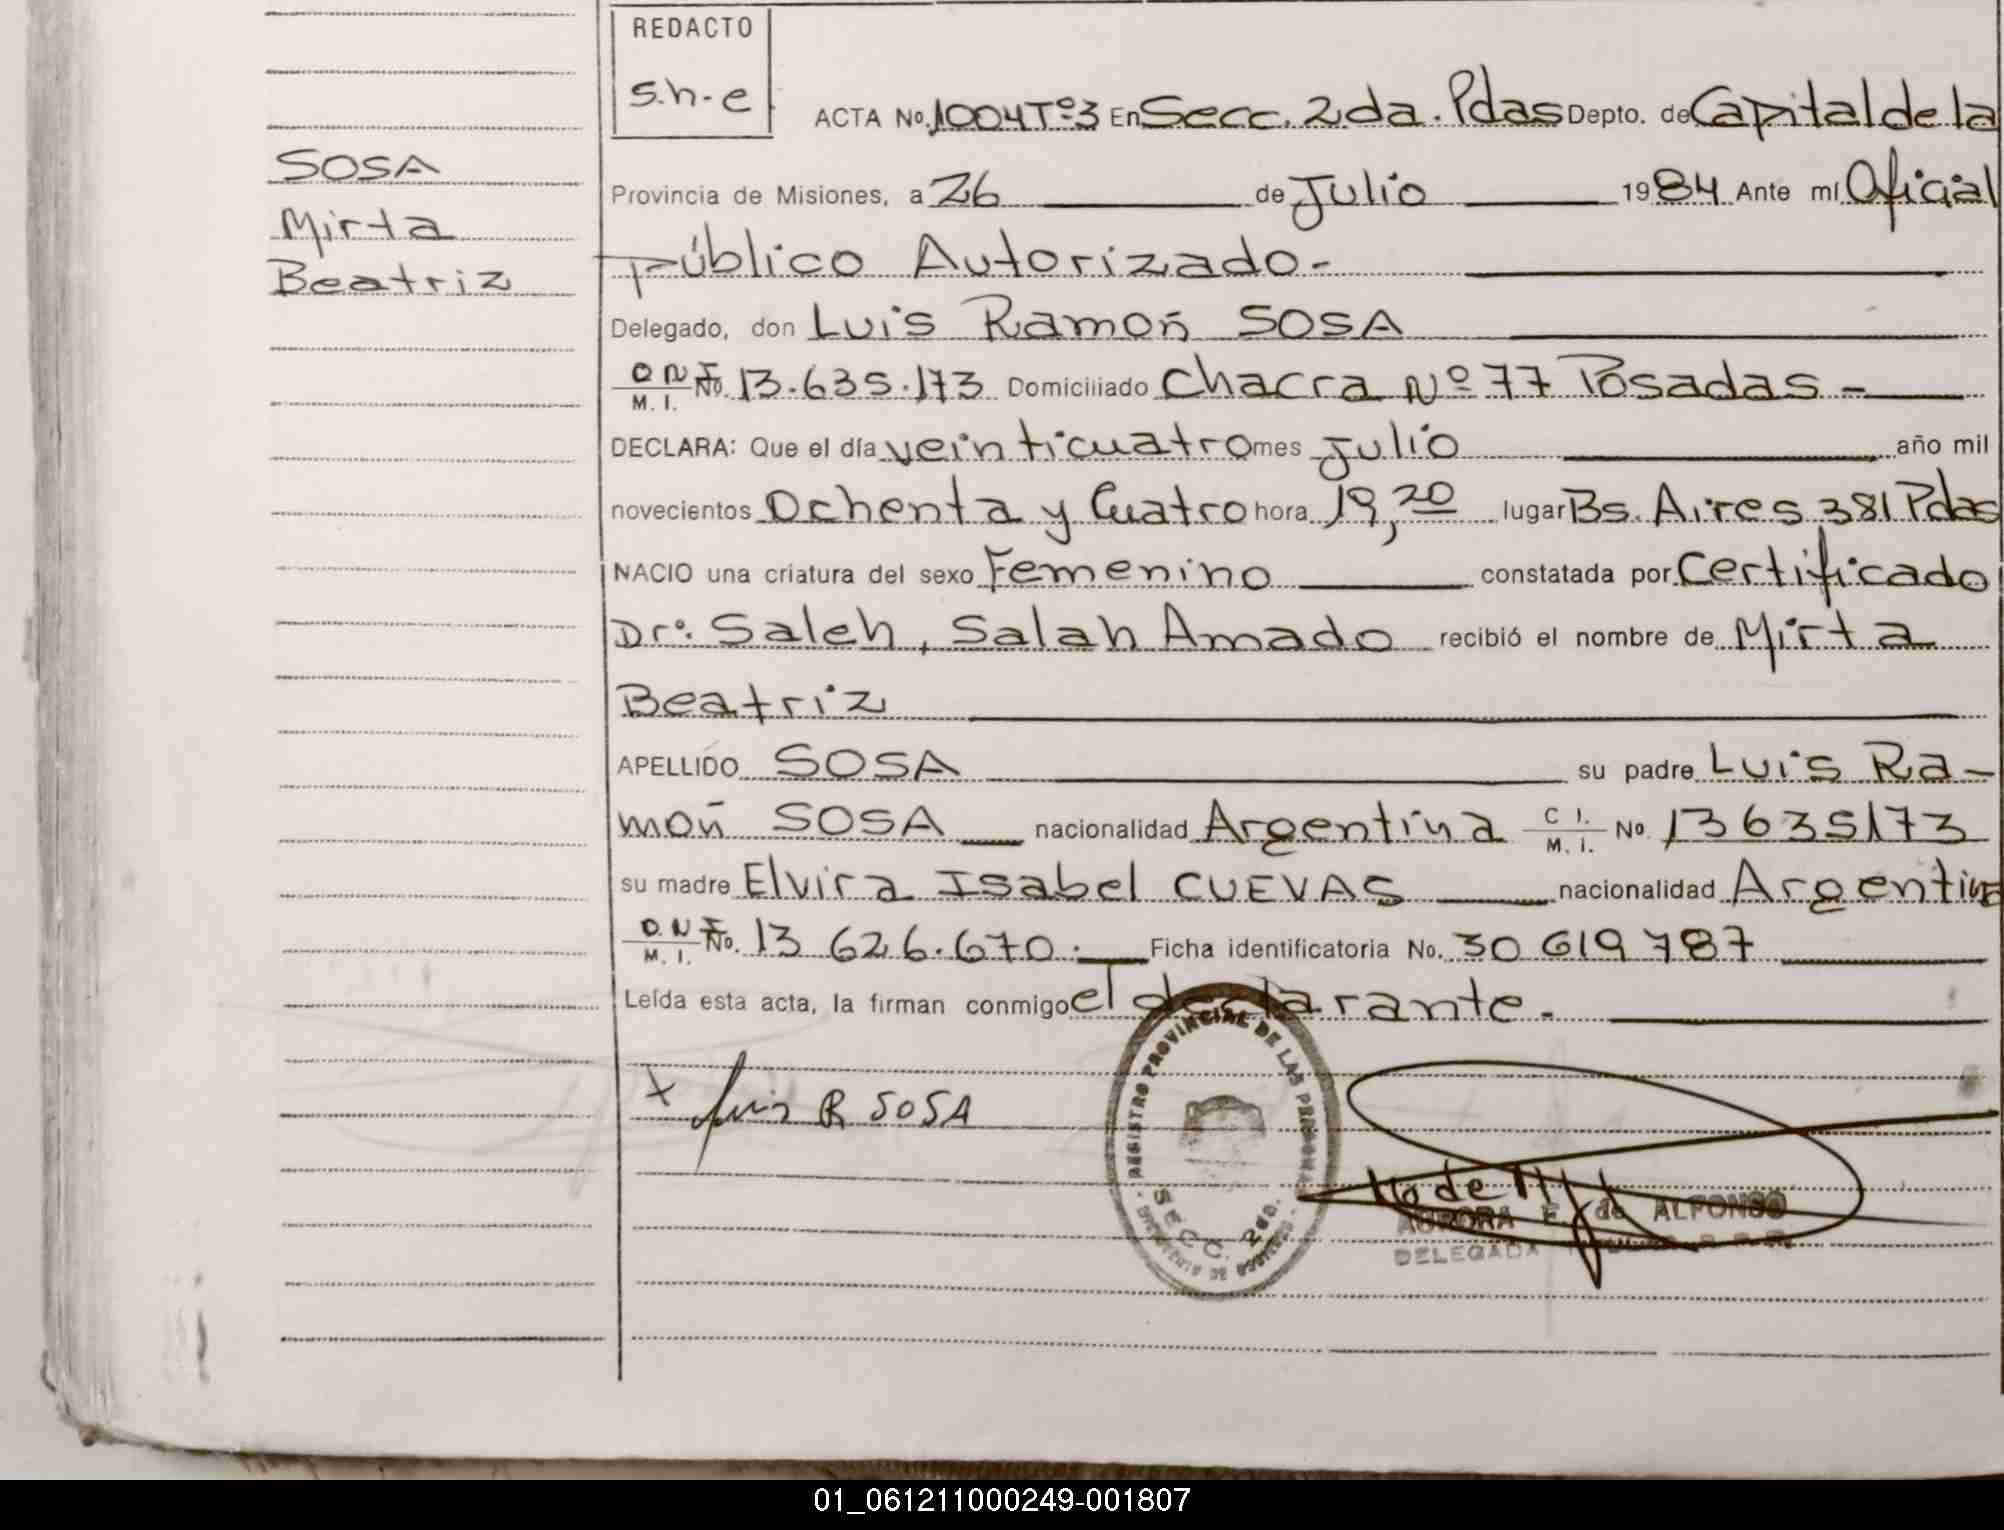 REDACTO
S.h-e
ACTA No. 1004 Tº3 En Secc. 2da. Pdas Depto. de Capital de la
SOSA
Mirta
Beatriz
Provincia de Misiones, a 26 de Julio 1984 Ante mí Oficial
público Autorizado-
Delegado, don Luis Ramoń SOSA
D N I No. M. I. 13.635.173 Domiciliado Chacra Nº 77 Posadas -
DECLARA: Que el día veinticuatro mes Julio año mil
novecientos Ochenta y Cuatro hora 19,20 lugar Bs. Aires 381 Pdas
NACIO una criatura del sexo Femenino constatada por Certificado
Dr: Saleh, Salah Amado recibió el nombre de Mirta
Beatriz
APELLIDO SOSA su padre Luis Ra-
moń SOSA nacionalidad Argentina C I. M. I. No. 13635173
su madre Elvira Isabel CUEVAS nacionalidad Argentina
D. N I No. M. I. 13 626.670.- Ficha identificatoria No. 30 619 787
Leída esta acta, la firman conmigo el declarante.-
x Luis R SOSA
REGISTRO PROVINCIAL DE LAS PERSONAS
SECC. 2da.
AURORA E. de ALFONSO
DELEGADA
01_061211000249-001807